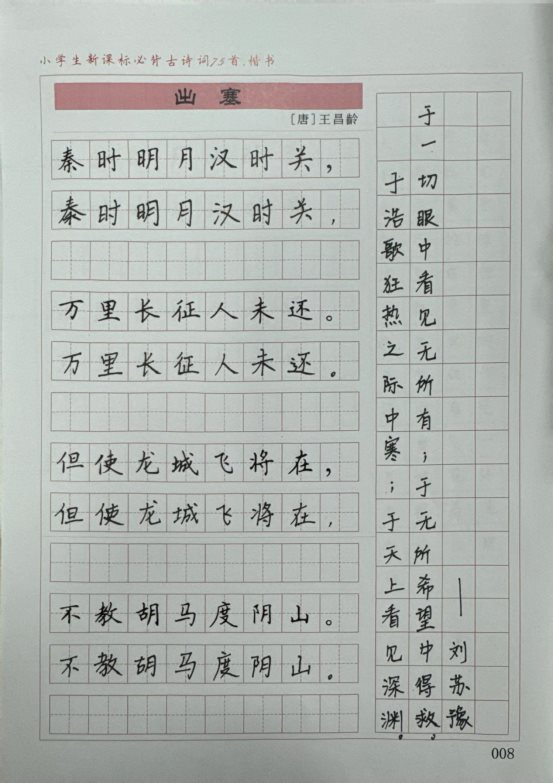 小学生新课标必背古诗词75首.楷书
出塞
[唐]王昌龄
秦时明月汉时关，
秦时明月汉时关，
万里长征人未还。
万里长征人未还。
但使龙城飞将在，
但使龙城飞将在，
不教胡马度阴山。
不教胡马度阴山。
于浩歌狂热之际中寒；于天上看见深渊。
于一切眼中看见无所有；于无所希望中得救。
——刘苏豫
008